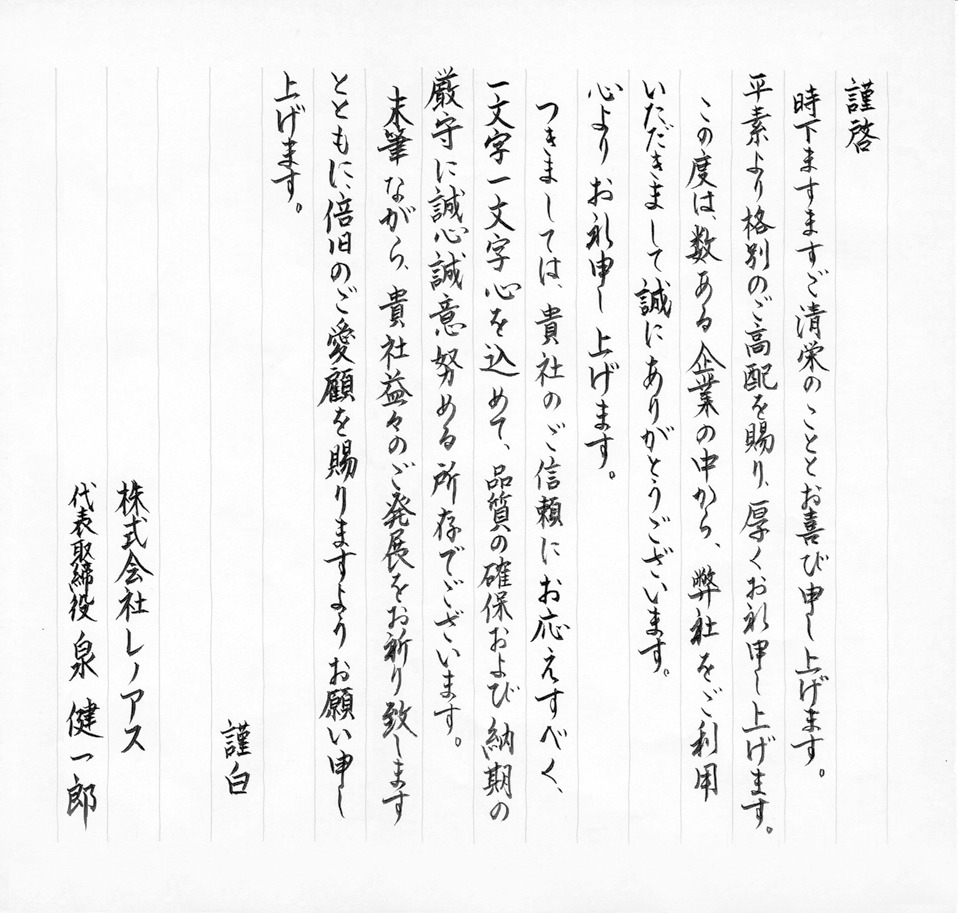 謹啓
時下ますますご清栄のこととお喜び申し上げます。
平素より格別のご高配を賜り、厚くお礼申し上げます。
この度は、数ある企業の中から、弊社をご利用
いただきまして誠にありがとうございます。
心よりお礼申し上げます。
つきましては、貴社のご信頼にお応えすべく、
一文字一文字心を込めて、品質の確保および納期の
厳守に誠心誠意努める所存でございます。
末筆ながら、貴社益々のご発展をお祈り致します
とともに、倍旧のご愛顧を賜りますようお願い申し
上げます。
謹白
株式会社レノアス
代表取締役 泉 健一郎